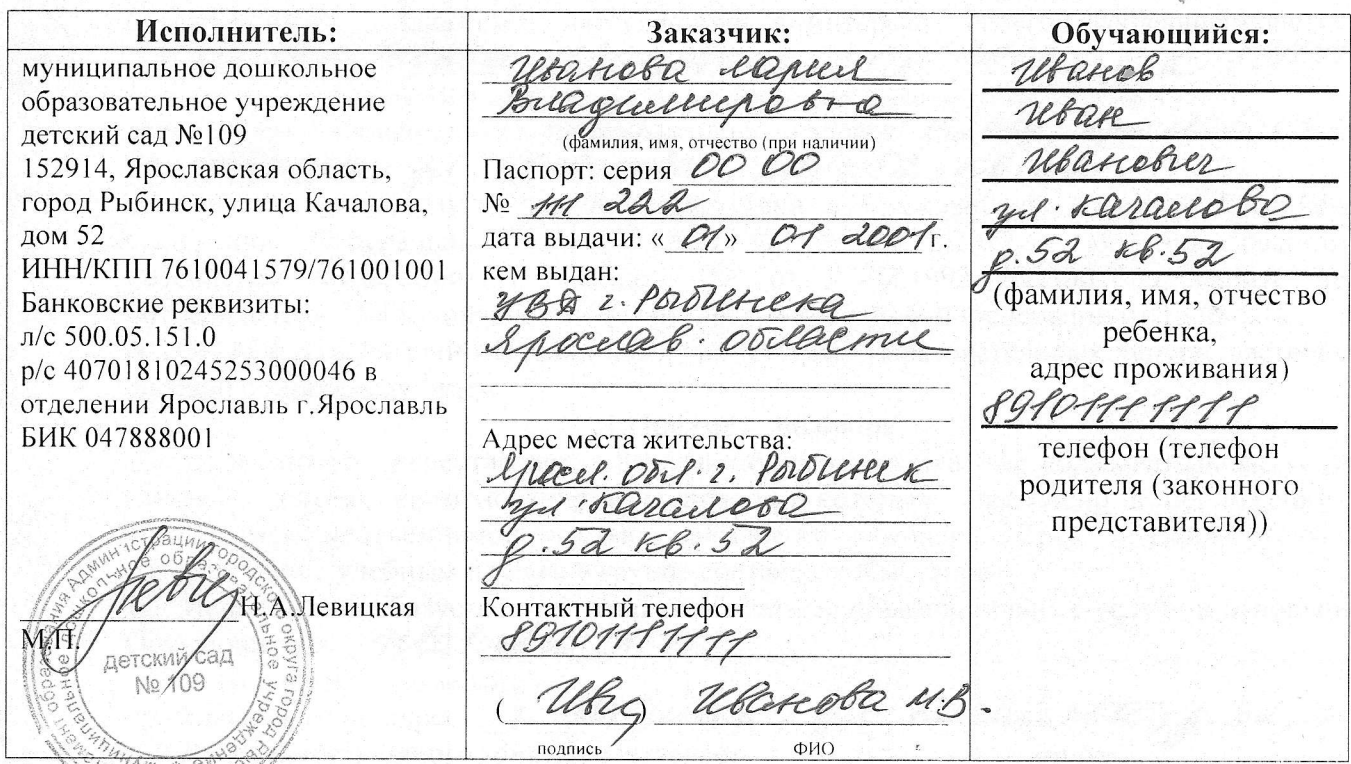 Исполнитель:
муниципальное дошкольное
образовательное учреждение
детский сад №109
152914, Ярославская область,
город Рыбинск, улица Качалова,
дом 52
ИНН/КПП 7610041579/761001001
Банковские реквизиты:
л/с 500.05.151.0
р/с 40701810245253000046 в
отделении Ярославль г.Ярославль
БИК 047888001
Н.А.Левицкая
М.П.
детский сад
№ 109
Заказчик:
Иванова Мария
Владимировна
(фамилия, имя, отчество (при наличии)
Паспорт: серия 00 00
№ 111 222
дата выдачи: « 01» 01 2001г.
кем выдан:
УВД г. Рыбинска
Ярослав. области
Адрес места жительства:
Яросл. обл. г. Рыбинск
ул Качалова
д. 52 кв. 52
Контактный телефон
89101111111
( ) Иванова М.В.
подпись ФИО
Обучающийся:
Иванов
Иван
Иванович
ул. Качалова
д. 52 кв. 52
(фамилия, имя, отчество
ребенка,
адрес проживания)
89101111111
телефон (телефон
родителя (законного
представителя))